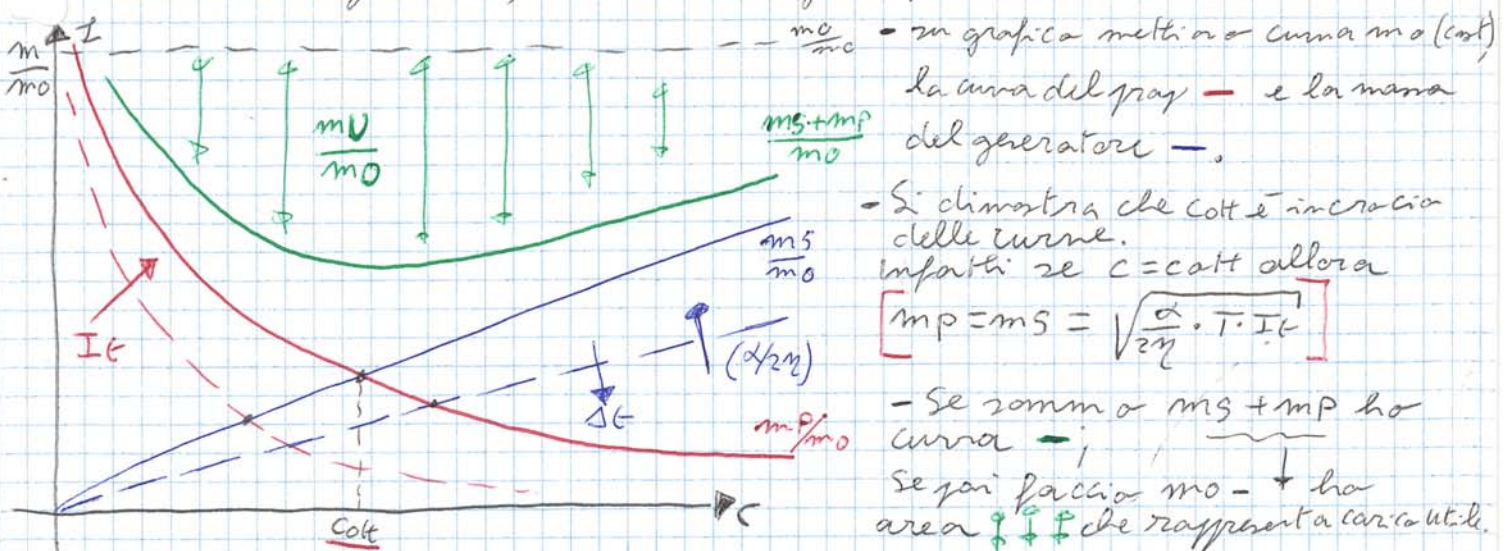 I
m/mo
mo/mo
mU/mo
ms+mp/mo
ms/mo
It
(α/2η)
Δt
mp/mo
Cott
C
- su grafico mettiamo curva mo (cost),
la curva del prop — e la massa
del generatore —.
- Si dimostra che Cott è incrocio
delle curve.
infatti se c = cott allora
[mp = ms = √(α/2η · T · It)]
- Se sommo ms + mp ho
curva — ;
Se poi faccio mo - ↓ ho
area ↕↕↕ che rappresenta carico utile.